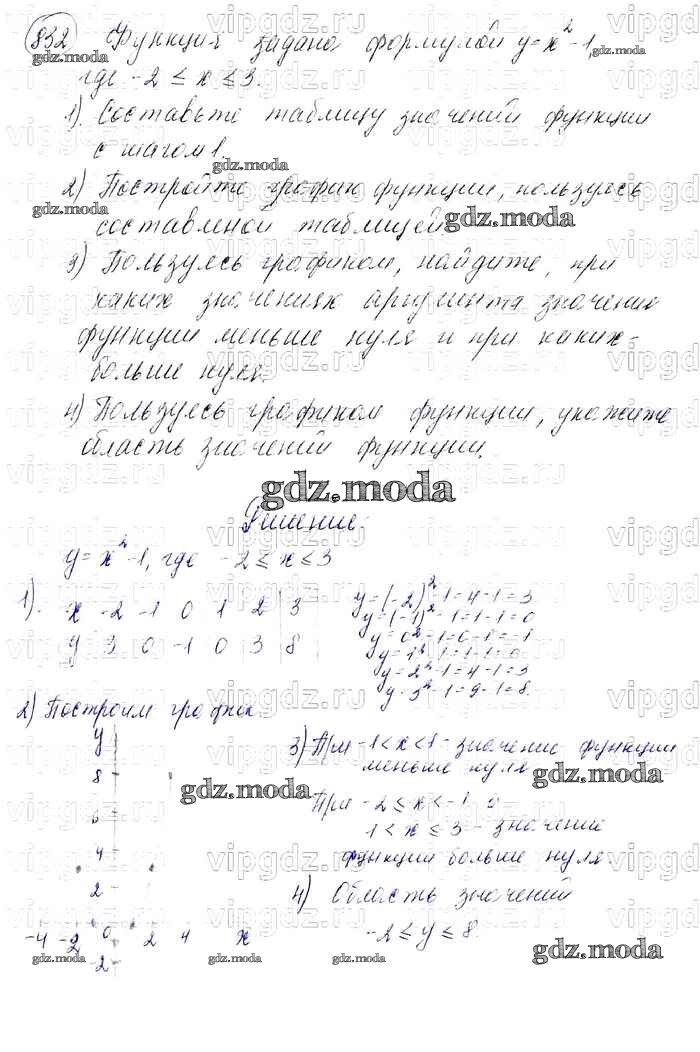 832 Функция задана формулой y=x²-1,
где -2 ≤ x ≤ 3.
1) Составьте таблицу значений функции
с шагом 1.
2) Постройте график функции, пользуясь
составленой таблицей
3) Пользуясь графиком, найдите, при
каких значениях аргумента значение
функции меньше нуля и при каких-
больше нуля.
4) Пользуясь графиком функции, укажите
область значений функции.
gdz.moda
Решение.
y=x²-1, где -2 ≤ x ≤ 3
1). x -2 -1 0 1 2 3
y 3 0 -1 0 3 8
y=(-2)²-1=4-1=3
y=(-1)²-1=1-1=0
y=0²-1=0-1=-1
y=1²-1=1-1=0
y=2²-1=4-1=3
y=3²-1=9-1=8.
2) Построим график
y
8
6
4
2
-4 -2 0 2 4 x
-2
3) При -1<x<1 - значение функции
меньше нуля
При -2 ≤ x < -1 и
1 < x ≤ 3 - значение
функции больше нуля.
4) Область значений
-2 ≤ y ≤ 8.